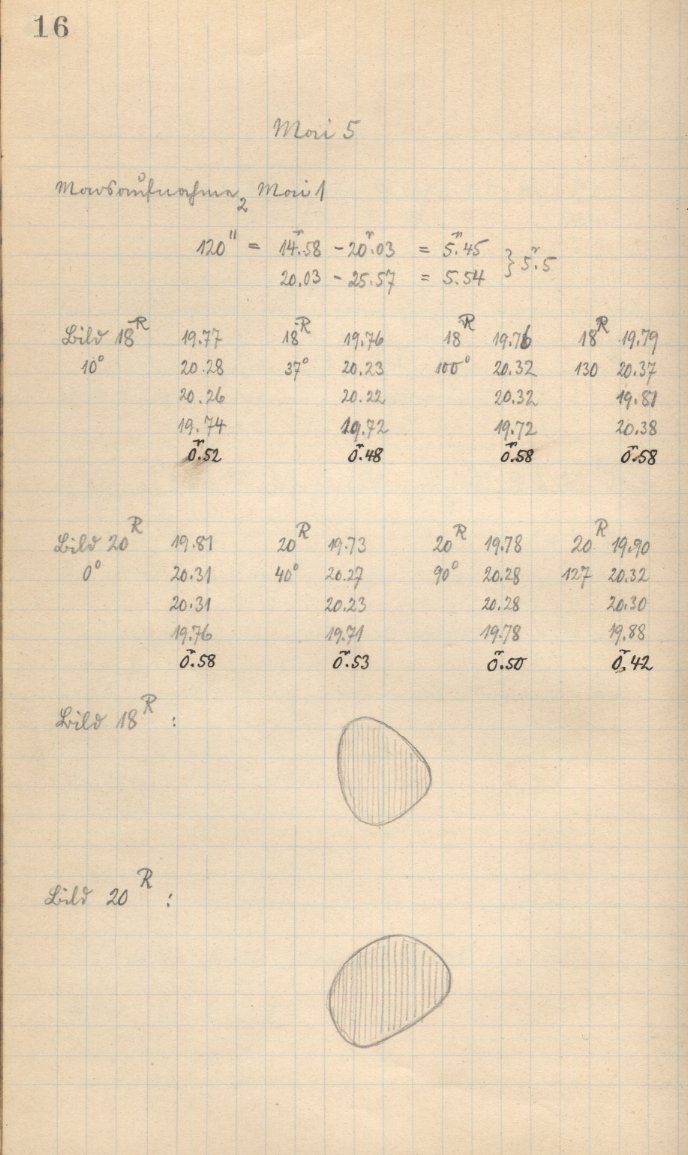 16
Mai 5
Marsaufnahme₂ Mai 1
120" = 14.ʳ58 - 20.ʳ03 = 5.ʳ45 } 5.ʳ5
20.03 - 25.57 = 5.54
Bild 18ᴿ 19.77 18ᴿ 19.76 18ᴿ 19.76 18ᴿ 19.79
10° 20.28 37° 20.23 100° 20.32 130 20.37
20.26 20.22 20.32 19.81
19.74 19.72 19.72 20.38
0.ʳ52 0.ʳ48 0.ʳ58 0.ʳ58
Bild 20ᴿ 19.81 20ᴿ 19.73 20ᴿ 19.78 20ᴿ 19.90
0° 20.31 40° 20.27 90° 20.28 127 20.32
20.31 20.23 20.28 20.30
19.76 19.71 19.78 19.88
0.ʳ58 0.ʳ53 0.ʳ50 0.ʳ42
Bild 18ᴿ :
Bild 20ᴿ :